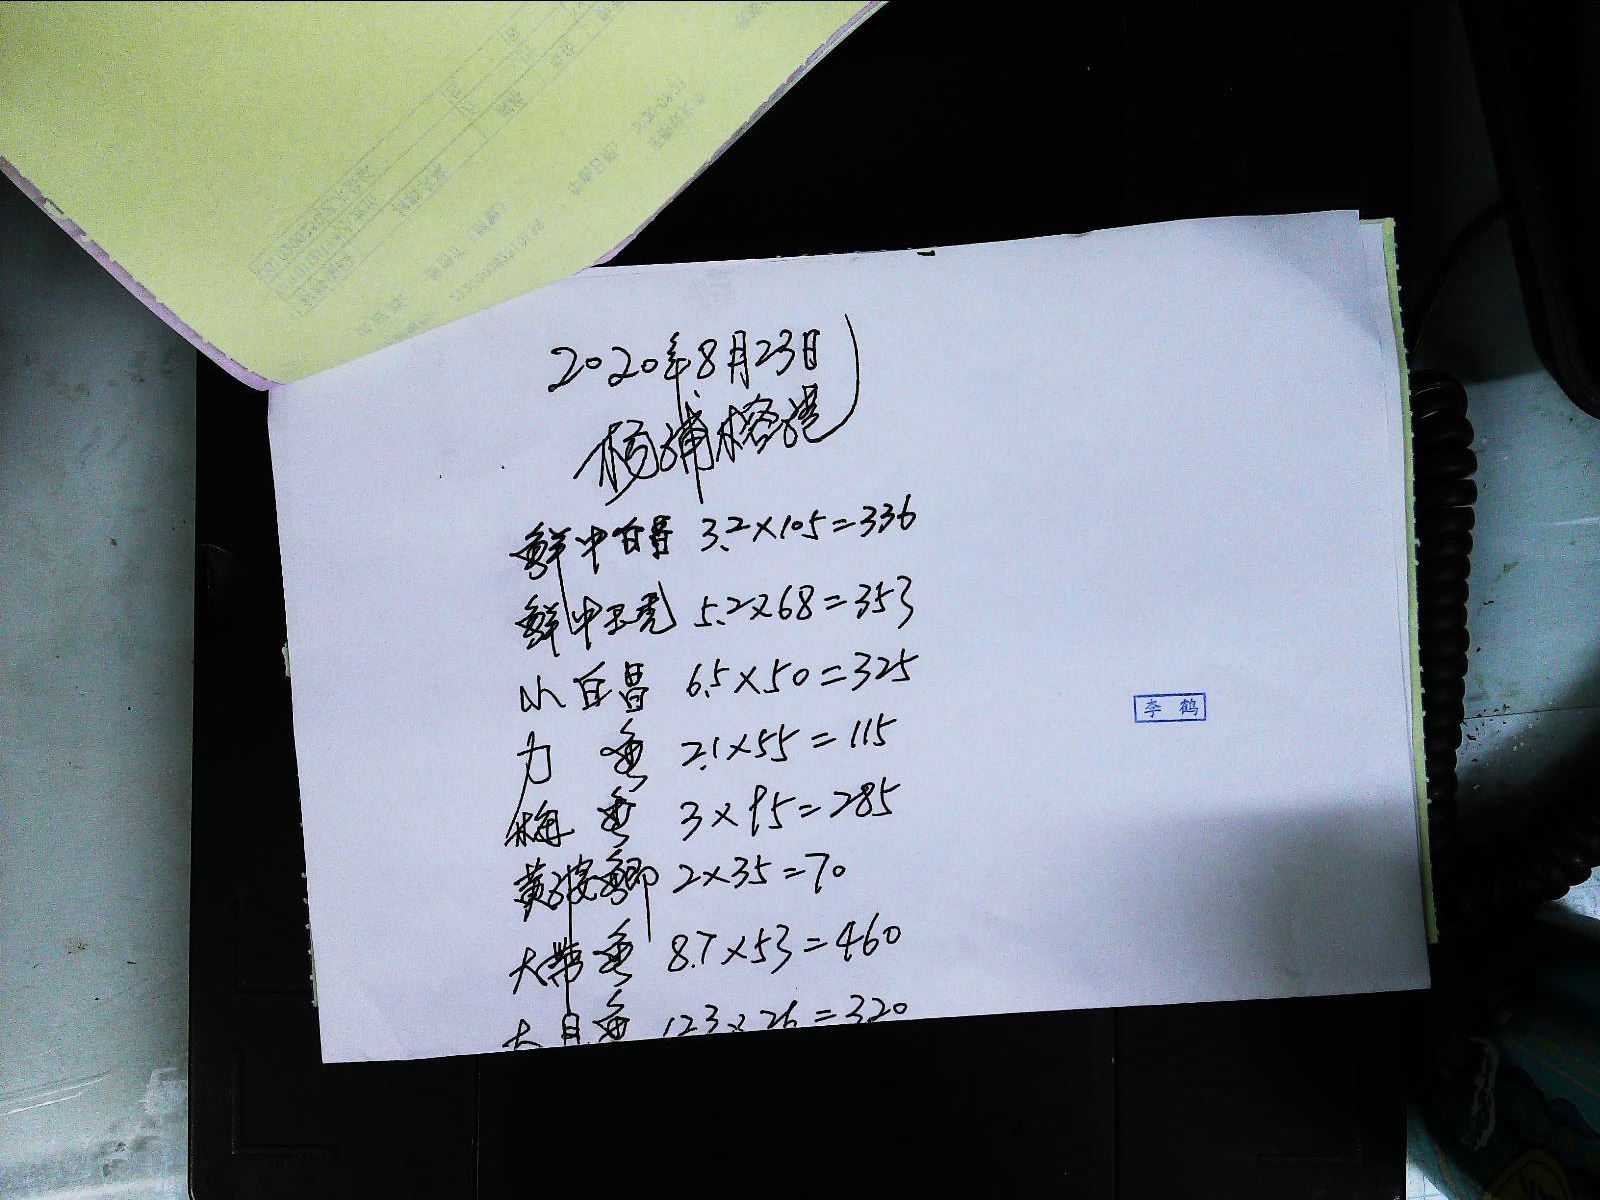 2020年8月23日
杨浦榕港
鲜中白昌 3.2×105=336
鲜中王虎 5.2×68=353
小白昌 6.5×50=325
力鱼 2.1×55=115
梅鱼 3×95=285
黄婆鲫 2×35=70
大带鱼 8.7×53=460
大目鱼 12.3×26=320
李鹤